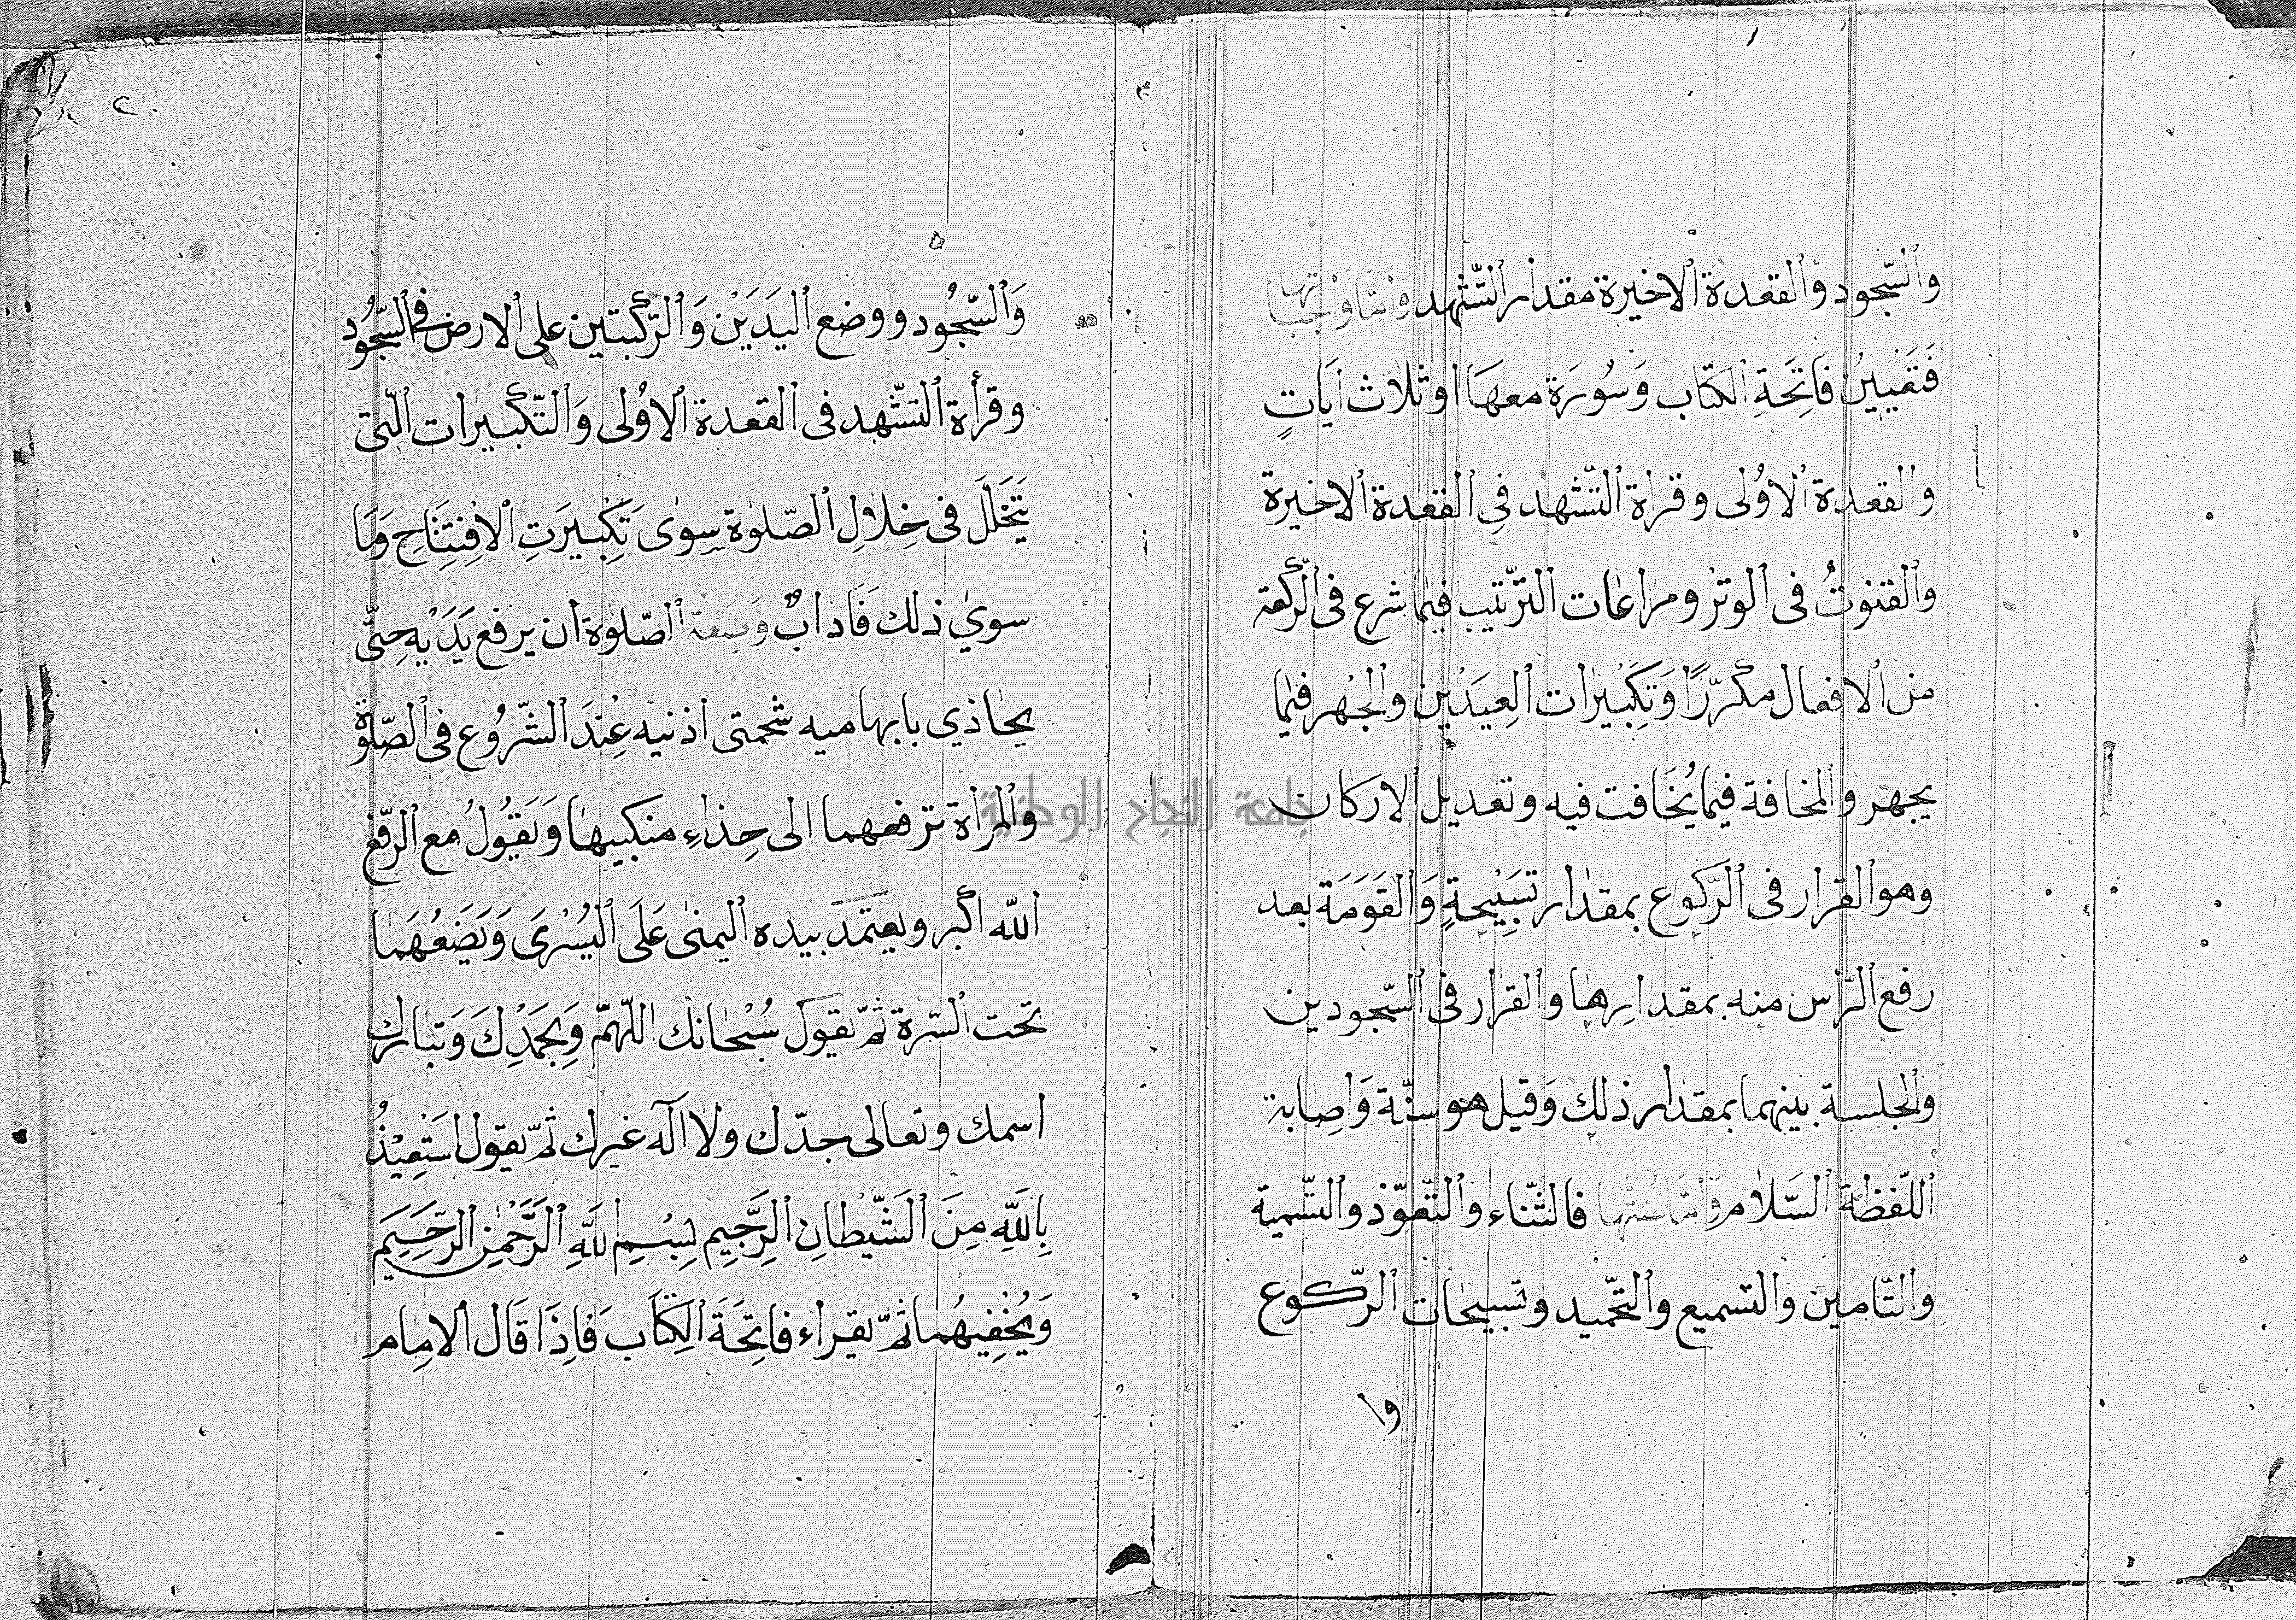 والسّجود والقعدة الاخيرة مقدار التّشهد وامّا واجباتها
فَتَعْيين فَاتِحَةِ الكتاب وَسُورَة معهَا اوثلاث ايَاتٍ
والقعدة الاوُلى وقراة التّشهد فِى القعدة الاخيرة
والقنوتُ فى الوتر ومراعات التّرتيب فيما شرع فى الرّكعة
من الافعال مكرّرًا وَتكِبْيرات العِيَدْين والجْهر فيما
يجهر والمخافة فيما يُخَافت فيه وتعديل الاركان
وهو القرار فى الرّكوع بمقدار تسَبِيْحةٍ وَالقَوَمَة بعد
رفع الرّاس منه بمقدارِها والقرار فى السّجودين
والجلسة بينهما بمقدار ذلك وَقيل هو سنّة وَاصِابة
اللّفظة السّلام وَامّا سُنّتُها فالثّناء والتّعوّذ والتّسمية
والتّامين والتسميع والتّحميد وتسبيحات الرّكوع
وا
٢
وَالسّجُود ووضع اليَدَيْن وَالرّكبتين على الارض فى السّجُود
وقرأة التشّهد فى القعدة الاوُلى وَالتّكبيرات الّتى
يَتَخَلّلَ فى خِلالِ الصّلوٰة سِوٰى تَكِبْيرَتِ الافِتِتَاحِ وَمَا
سوي ذلك فَاَدابٌ وَصفة الصّلوٰة ان يرفع يَدَيْهِ حتّى
يحاذي بابهاميه شحمتى اذنيه عِنْدَ الشّرُوع فى الصّلوٰة
والمرْاة ترفعهما الى حِذاءِ منكبيهَا وَيَقُولُ مع الرّفع
اللّه اكبر ويعتمَد بيده اليمنٰى عَلَى اليُسْرٰى وَيَضَعُهَمَا
تحت السّرة ثمّ يقوَل سُبْحَانَك اللّهمّ وَبِحَمْدِكَ وَتبَارك
اسمك وتعالى جدّك ولا اله غيرك ثمّ يقول اسَتعِيْذُ
بِاللّهِ مِنَ الشّيْطانِ الرّجيم بِسْمِ اللّهِ الرَّحْمٰنِ الرّحَيِم
وَيُخْفِيهُما ثمّ يقراء فاتِحَةَ الكِتَابَ فَاِذَا قَال الامِام
جامعة النجاح الوطنية